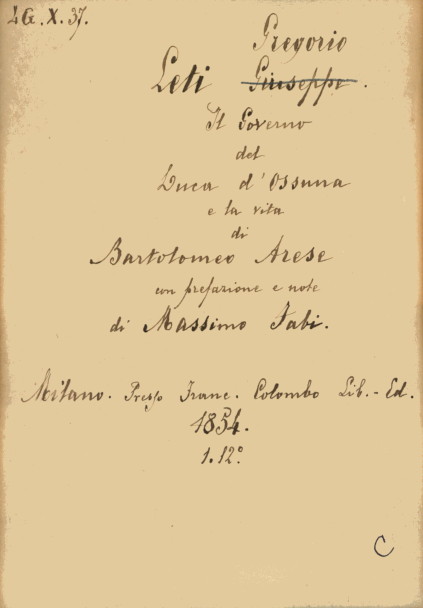 LG. X. 37.
Gregorio
Leti Giuseppe.
Il Governo
del
Duca d'Ossuna
e la vita
di
Bartolomeo Arese
con prefazione e note
di Massimo Fabi.
Milano. Presso Franc. Colombo Lib.-Ed.
1854.
1. 12°
C